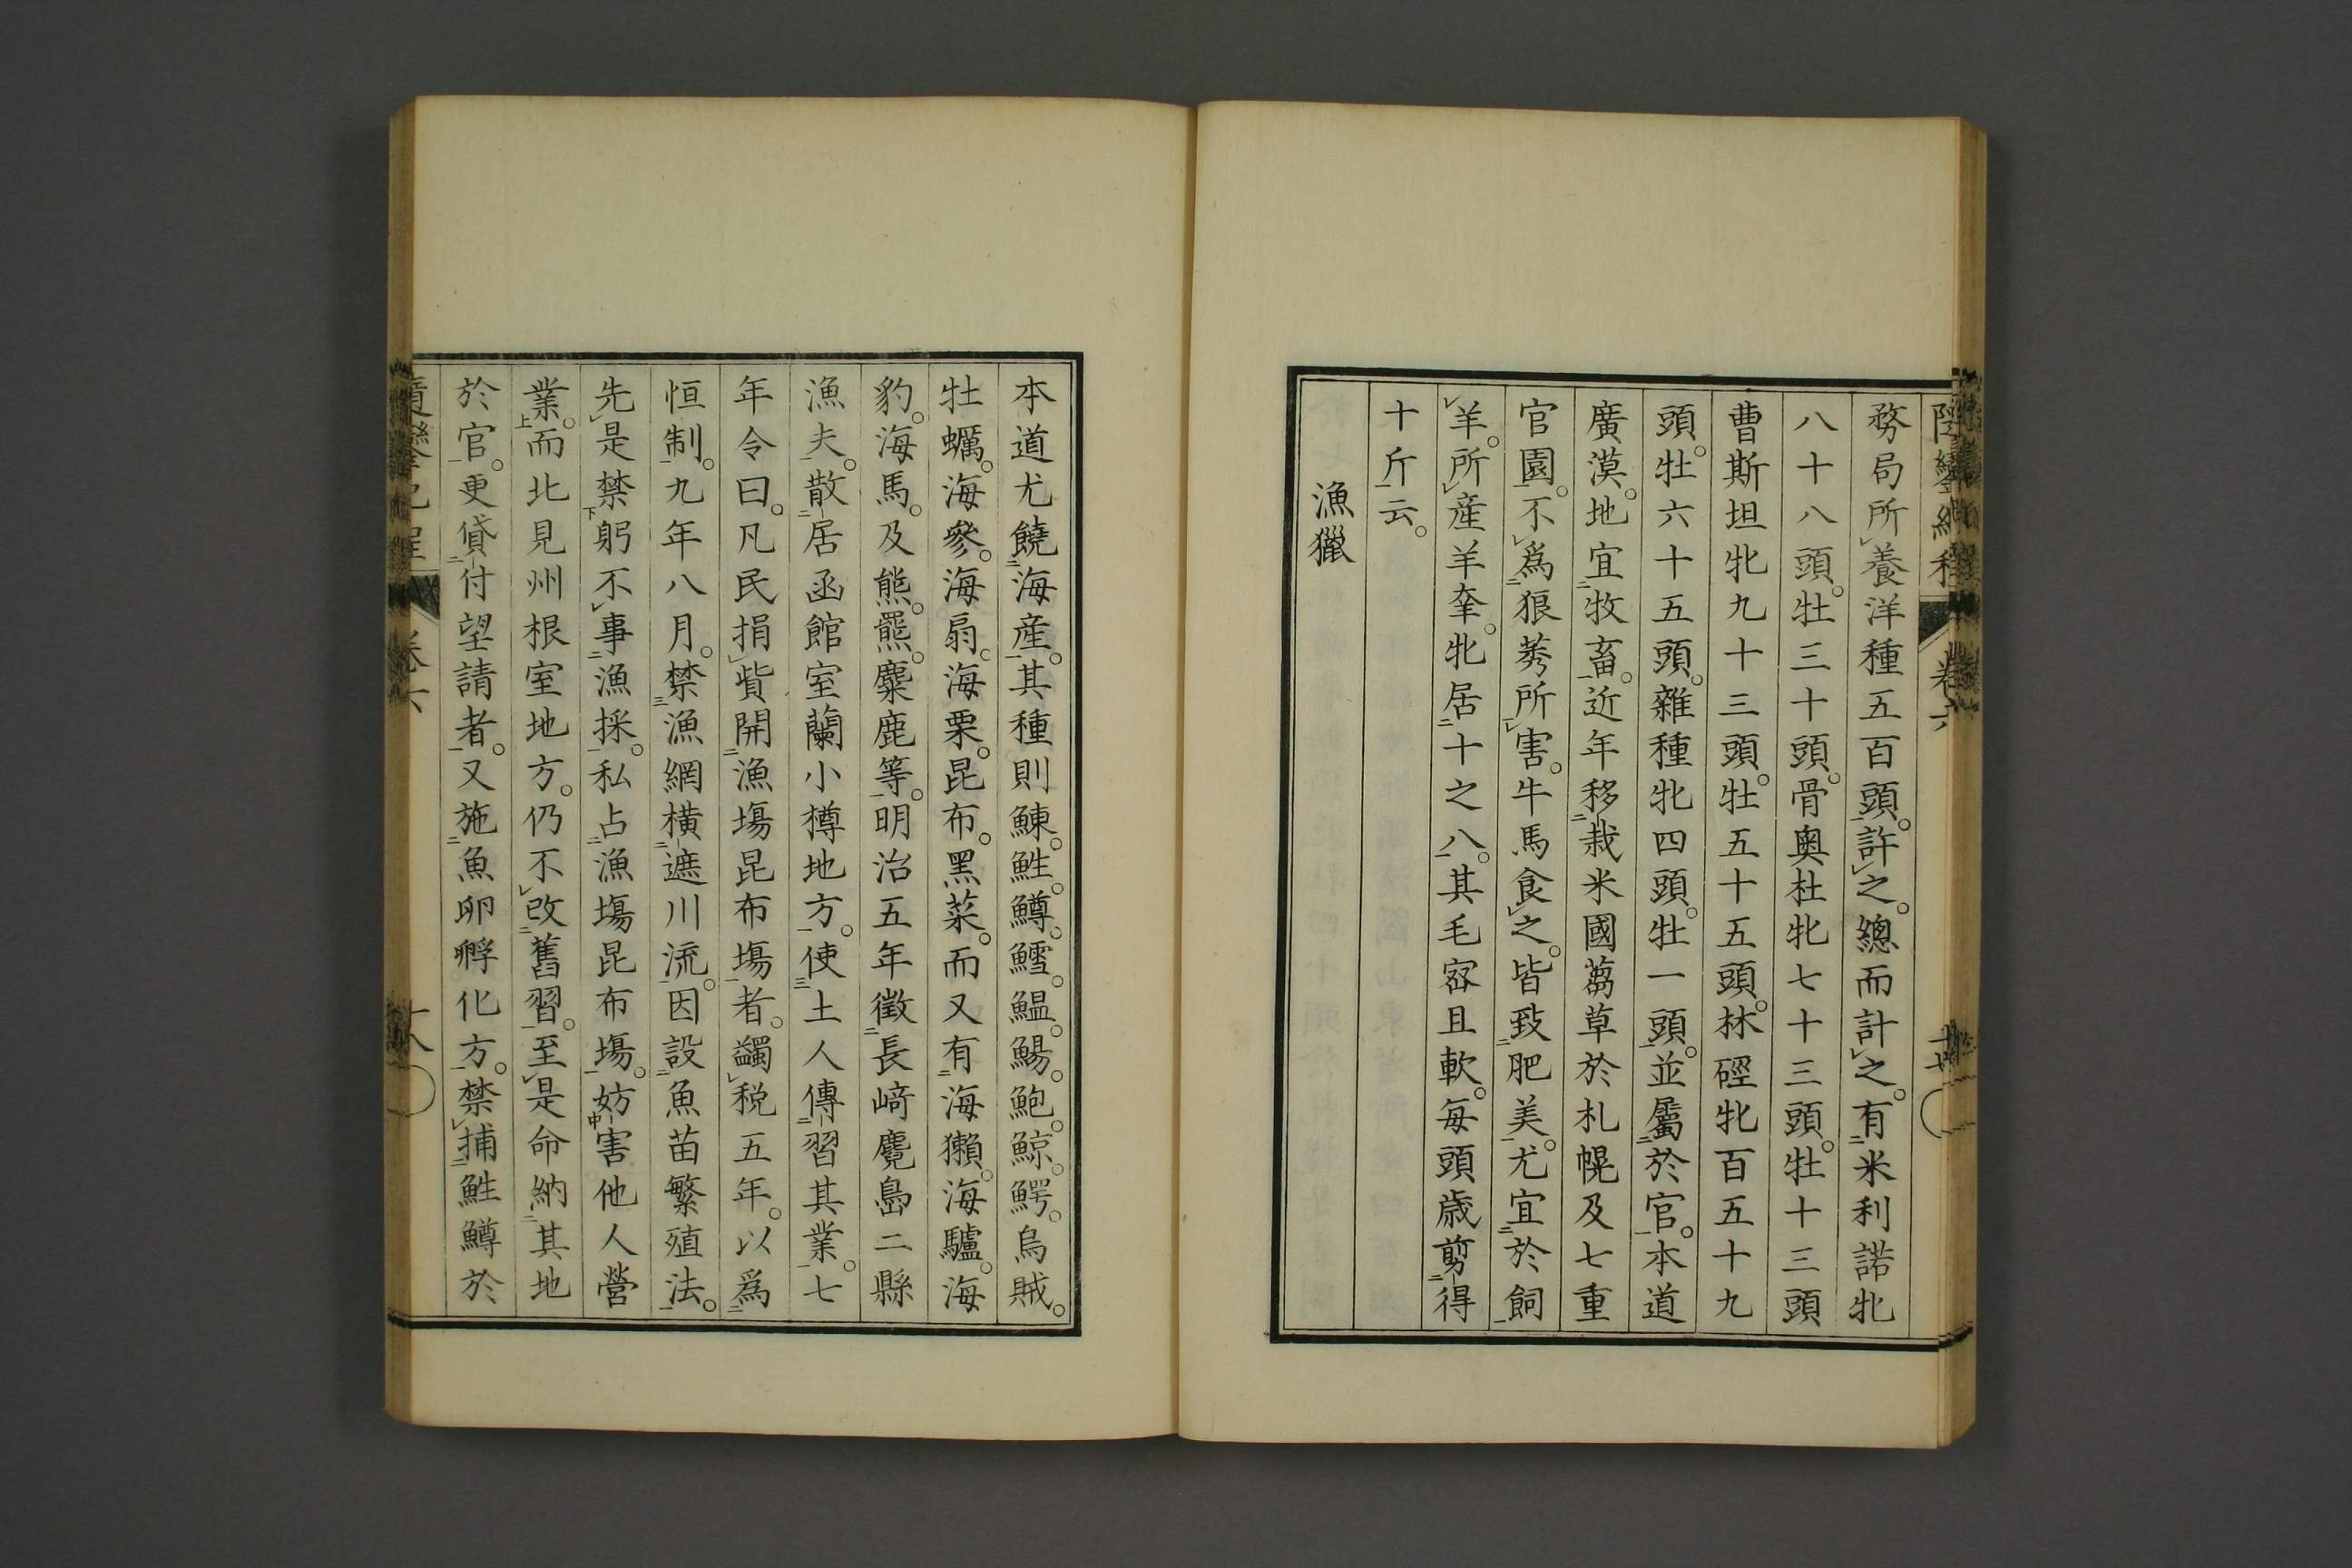 務局所養洋種五百頭許之。總而計之。有米利諾牝
八十八頭。牡三十頭。骨奧杜牝七十三頭。牡十三頭
曹斯坦牝九十三頭。牡五十五頭。林硜牝百五十九
頭。牡六十五頭。雜種牝四頭。牡一頭。並屬於官。本道
廣漠。地宜牧畜。近年移栽米國蒭草於札幌及七重
官園。不爲狼莠所害。牛馬食之。皆致肥美。尤宜於飼
羊。所産羊羍。牝居十之八。其毛宻且軟。每頭歳剪得
十斤云。
漁獵
本道尤饒海産。其種則鰊。鮏。鱒。鱈。鰛。鰑。鮑。鯨。鰐。烏賊。
牡蠣。海參。海扇。海栗。昆布。黑菜。而又有海獺。海驢。海
豹。海馬。及熊。羆。麋鹿等。明治五年徵長﨑麑島二縣
漁夫。散居函館室蘭小樽地方。使土人傳習其業。七
年令曰。凡民捐貲開漁塲昆布塲者。蠲税五年。以爲
恒制。九年八月。禁漁網橫遮川流。因設魚苗繁殖法。
先是禁躬不事漁採。私占漁塲昆布塲。妨害他人營
業。而北見州根室地方。仍不改舊習。至是命納其地
於官。更貸付望請者。又施魚卵孵化方。禁捕鮏鱒於
卷六